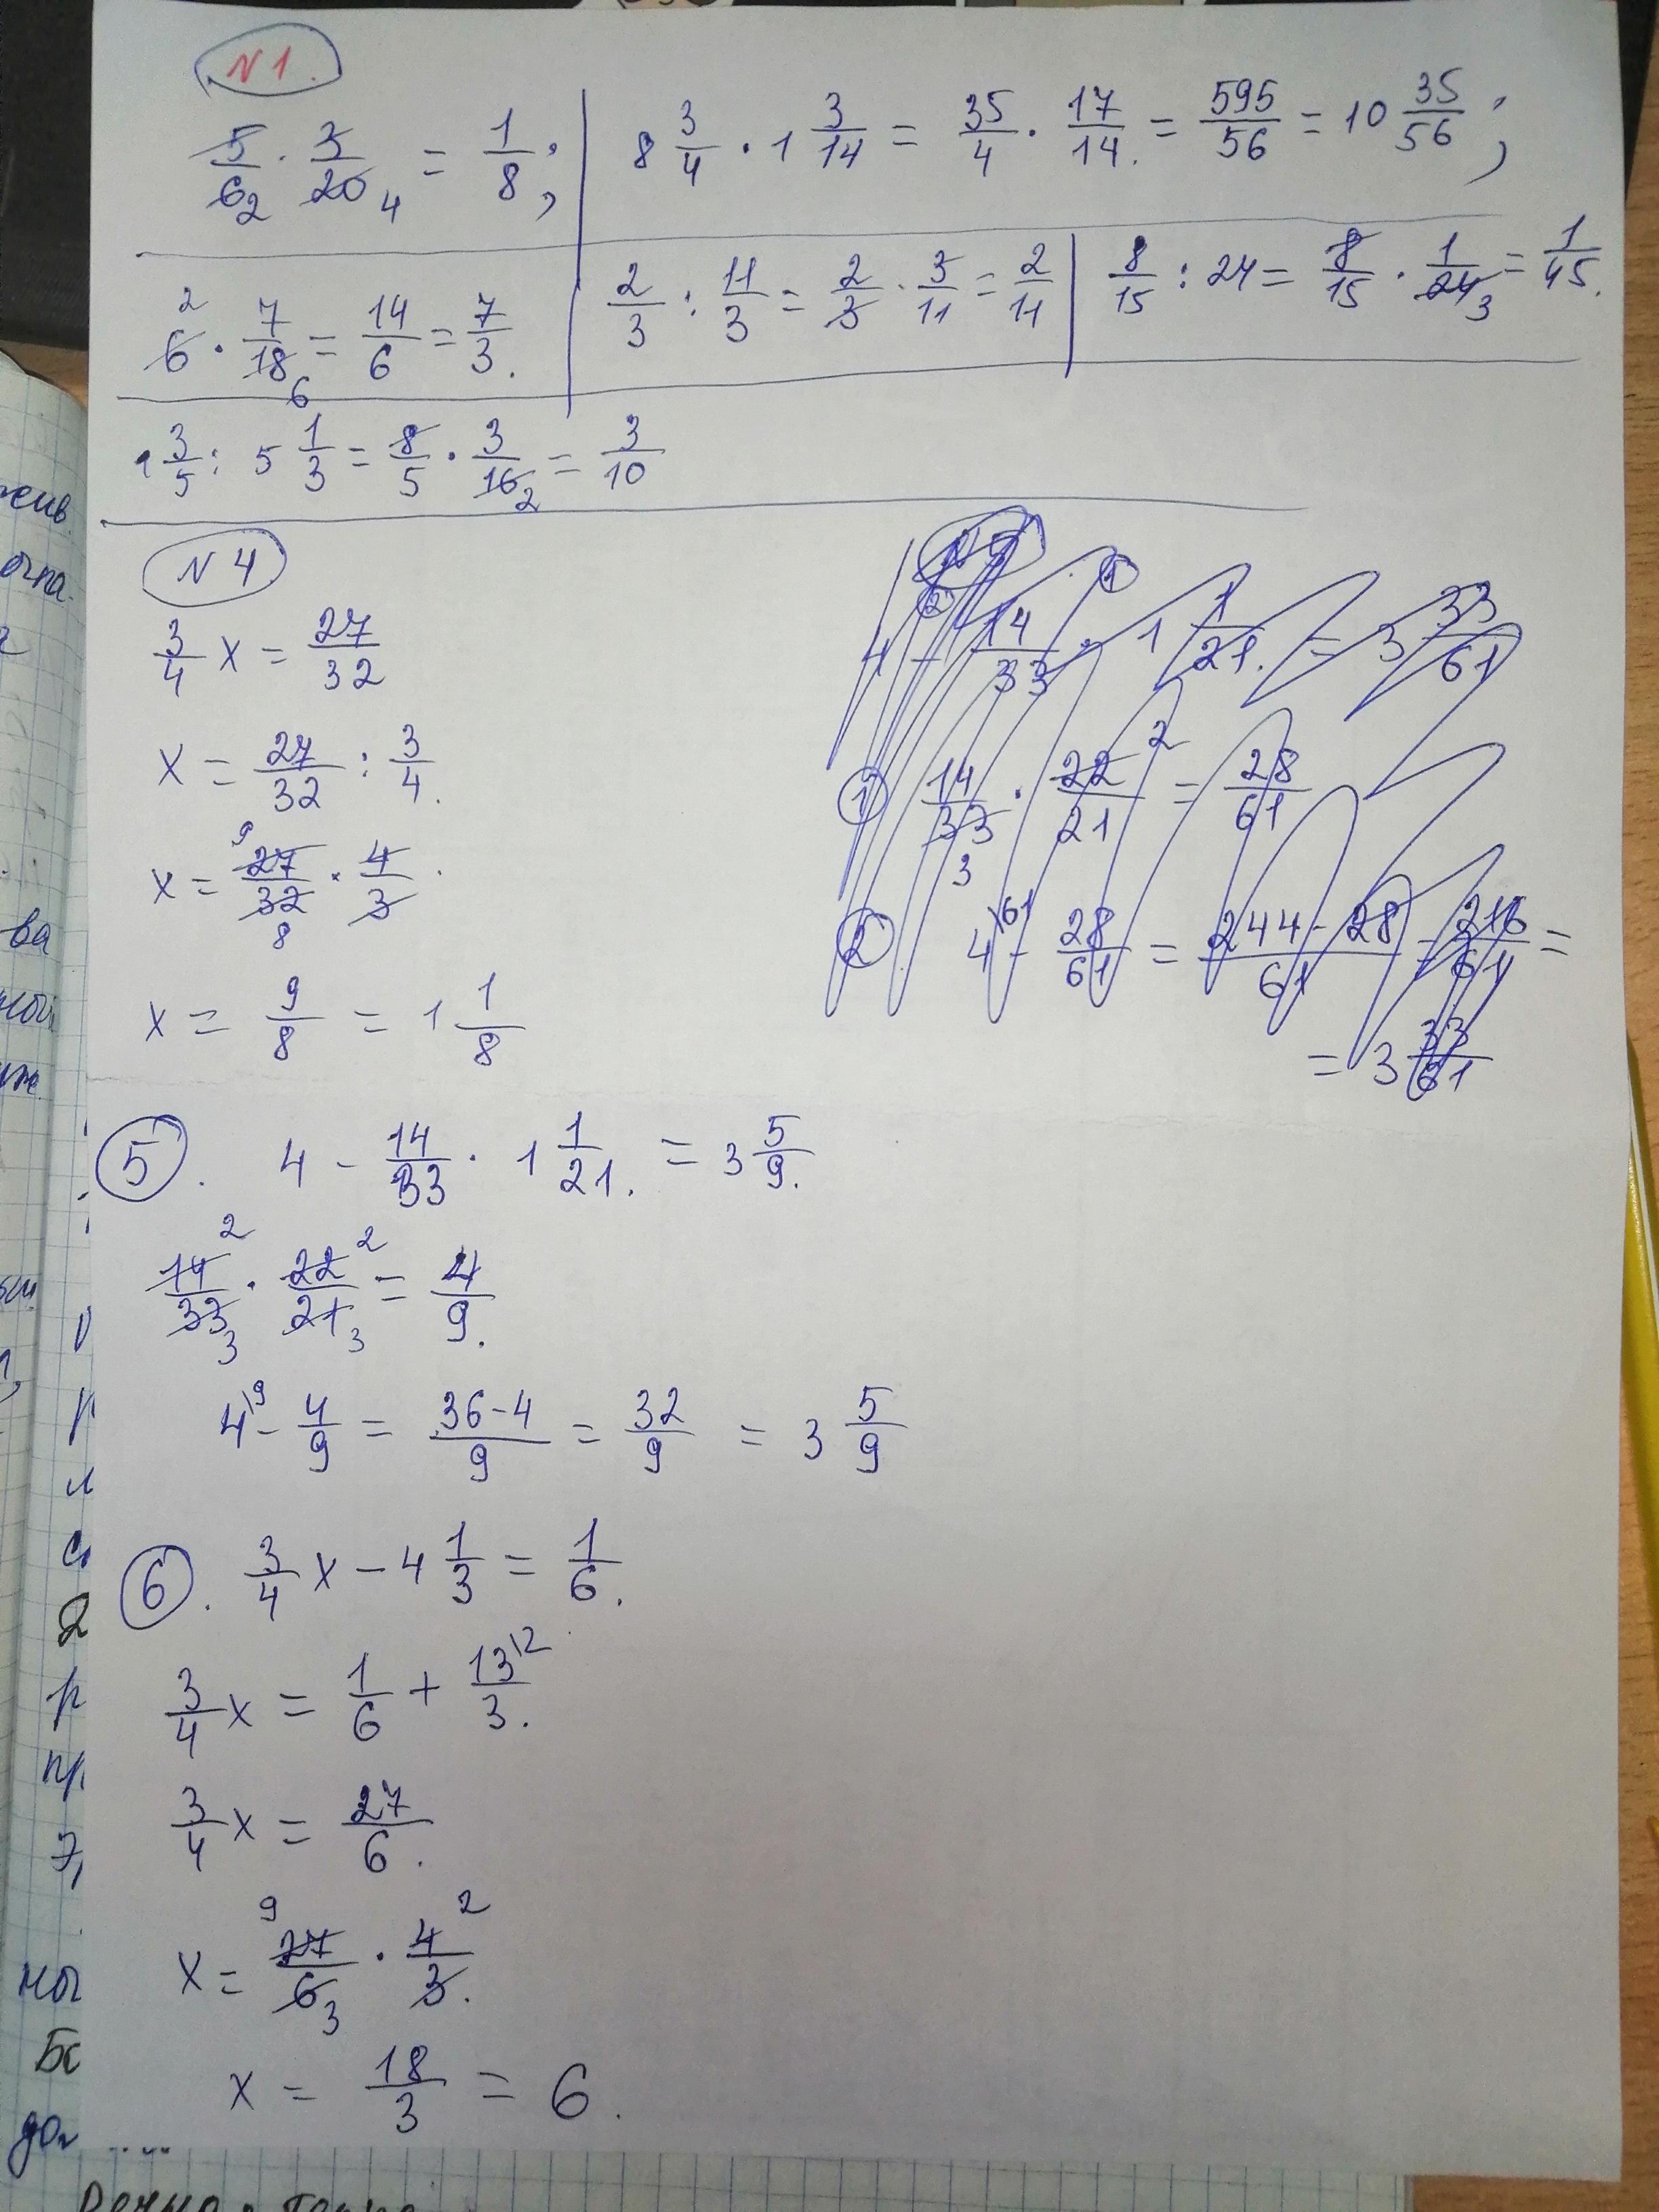 N 1.
5/6 2 · 3/20 4 = 1/8;
8 3/4 · 1 3/14 = 35/4 · 17/14. = 595/56 = 10 35/56;
2 6 · 7/18 6 = 14/6 = 7/3.
2/3 : 11/3 = 2/3 · 3/11 = 2/11
8/15 : 24 = 8/15 · 1/24 3 = 1/45.
1 3/5 : 5 1/3 = 8/5 · 3/16 2 = 3/10
N 4
3/4 x = 27/32
x = 27/32 : 3/4.
x = 9 27/32 8 · 4/3.
x = 9/8 = 1 1/8
4 - 14/33 · 1 1/21. = 3 33/61
1 14/33 3 · 22/21 2 = 28/61
2 4\61 - 28/61 = 244-28/61 = 216/61 =
= 3 33/61
5. 4 - 14/33 · 1 1/21. = 3 5/9.
14/33 2 3 · 22/21 2 3 = 4/9.
4\9 - 4/9 = 36-4/9 = 32/9 = 3 5/9
6. 3/4 x - 4 1/3 = 1/6.
3/4 x = 1/6 + 13\2/3.
3/4 x = 27/6.
x = 9 27/6 3 · 4 2/3.
x = 18/3 = 6.
ва
ны